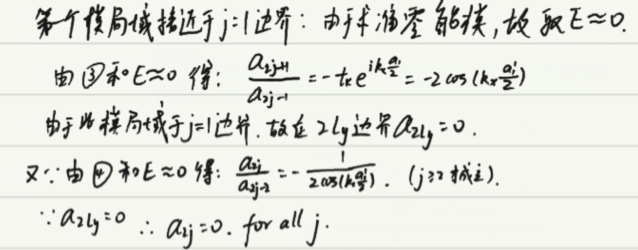 第一个模局域接近于j=1边界：由于求准零能模，故取E≈0.
由③和E≈0 得： a_{2j+1}/a_{2j-1} = -t_x e^{ik_x a/2} = -2cos(k_x a/2)
由于此模局域于j=1边界，故在2Ly边界a_{2Ly}=0.
又∵由④和E≈0得： a_{2j}/a_{2j-2} = - 1/(2cos(k_x a/2)) . (j≥2成立).
∵a_{2Ly}=0 ∴ a_{2j}=0. for all j.